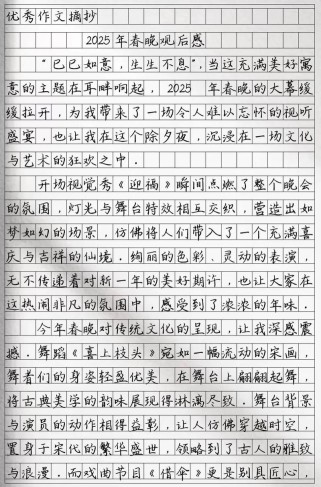 优秀作文摘抄
2025年春晚观后感
“巳巳如意,生生不息”,当这充满美好寓
意的主题在耳畔响起,2025 年春晚的大幕缓
缓拉开,为我带来了一场令人难以忘怀的视听
盛宴,也让我在这个除夕夜,沉浸在一场文化
与艺术的狂欢之中.
开场视觉秀《迎福》瞬间点燃了整个晚会
的氛围,灯光与舞台特效相互交织,营造出如
梦如幻的场景,仿佛将人们带入了一个充满喜
庆与吉祥的仙境.绚丽的色彩、灵动的表演,
无不传递着对新一年的美好期许,也让大家在
这热闹非凡的氛围中,感受到了浓浓的年味.
今年春晚对传统文化的呈现,让我深感震
撼.舞蹈《喜上枝头》宛如一幅流动的宋画,
舞者们的身姿轻盈优美,在舞台上翩翩起舞,
将古典美学的韵味展现得淋漓尽致.舞台背景
与演员的动作相得益彰,让人仿佛穿越时空,
置身于宋代的繁华盛世,领略到了古人的雅致
与浪漫.而戏曲节目《借伞》更是别具匠心,